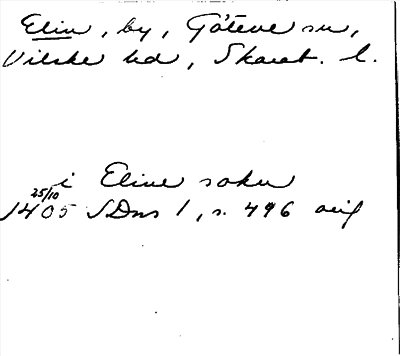 Elin, by, Göteve sn,
Vilske hd, Skarab. l.
i Eline sokn
25/10
1405 SDns 1, s. 496 orig